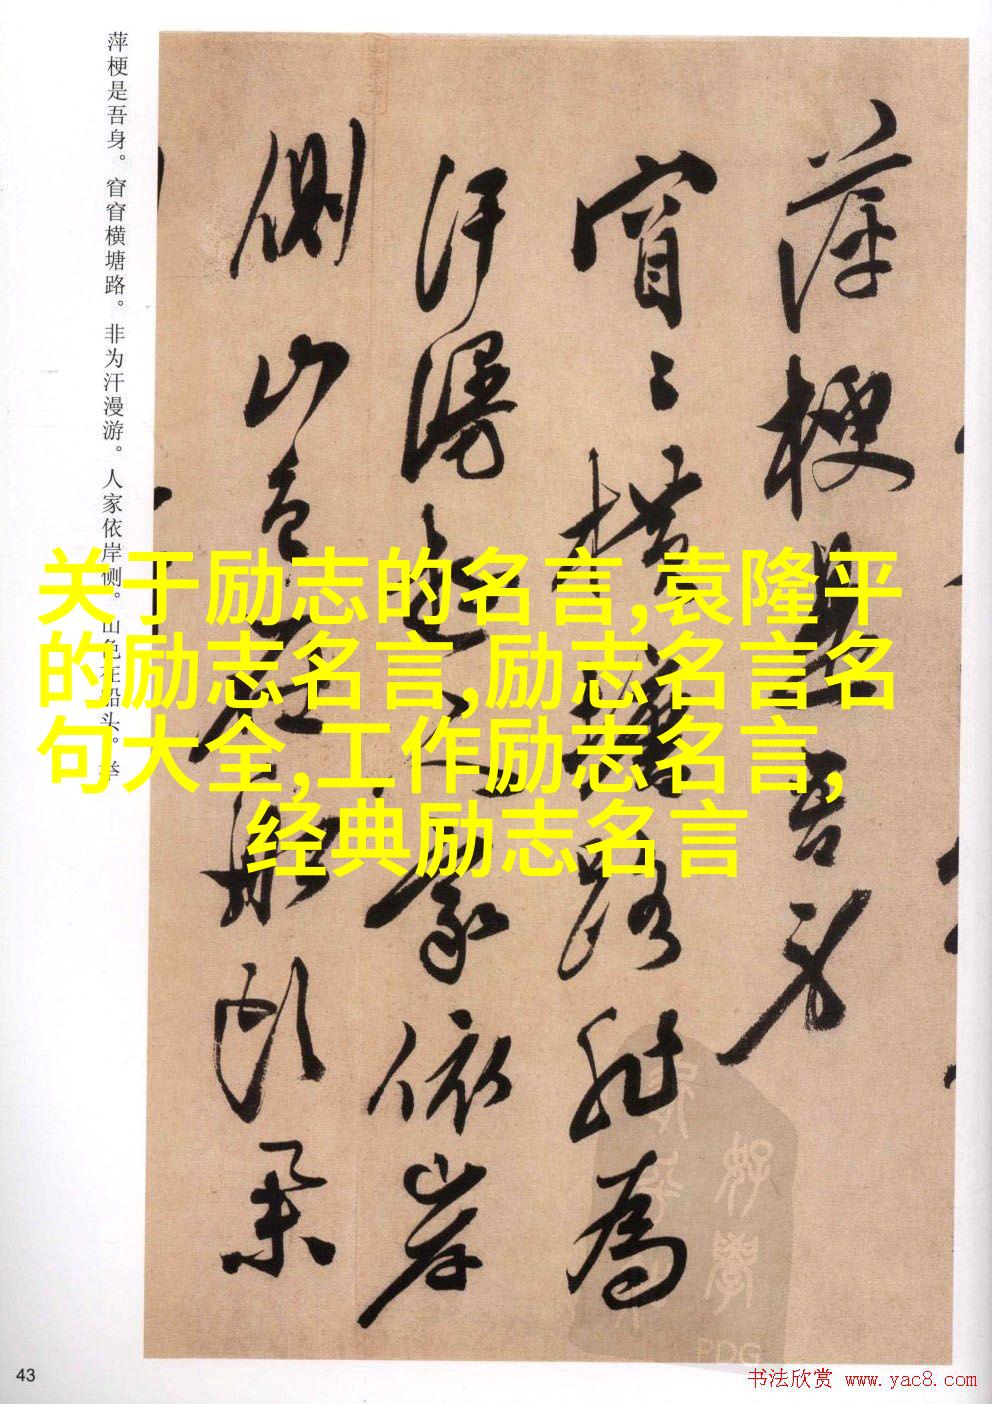 萍梗是吾身。窅窅横塘路。非为汗漫游。人家依岸侧。山色在船头。举
萍梗是吾身
窅〻橫塘路非為
汗漫遊人家依岸
側山色在船頭
关于励志的名言,袁隆平
的励志名言,励志名言名
句大全,工作励志名言,
经典励志名言
PDG
43
书法欣赏 www.yac8.com